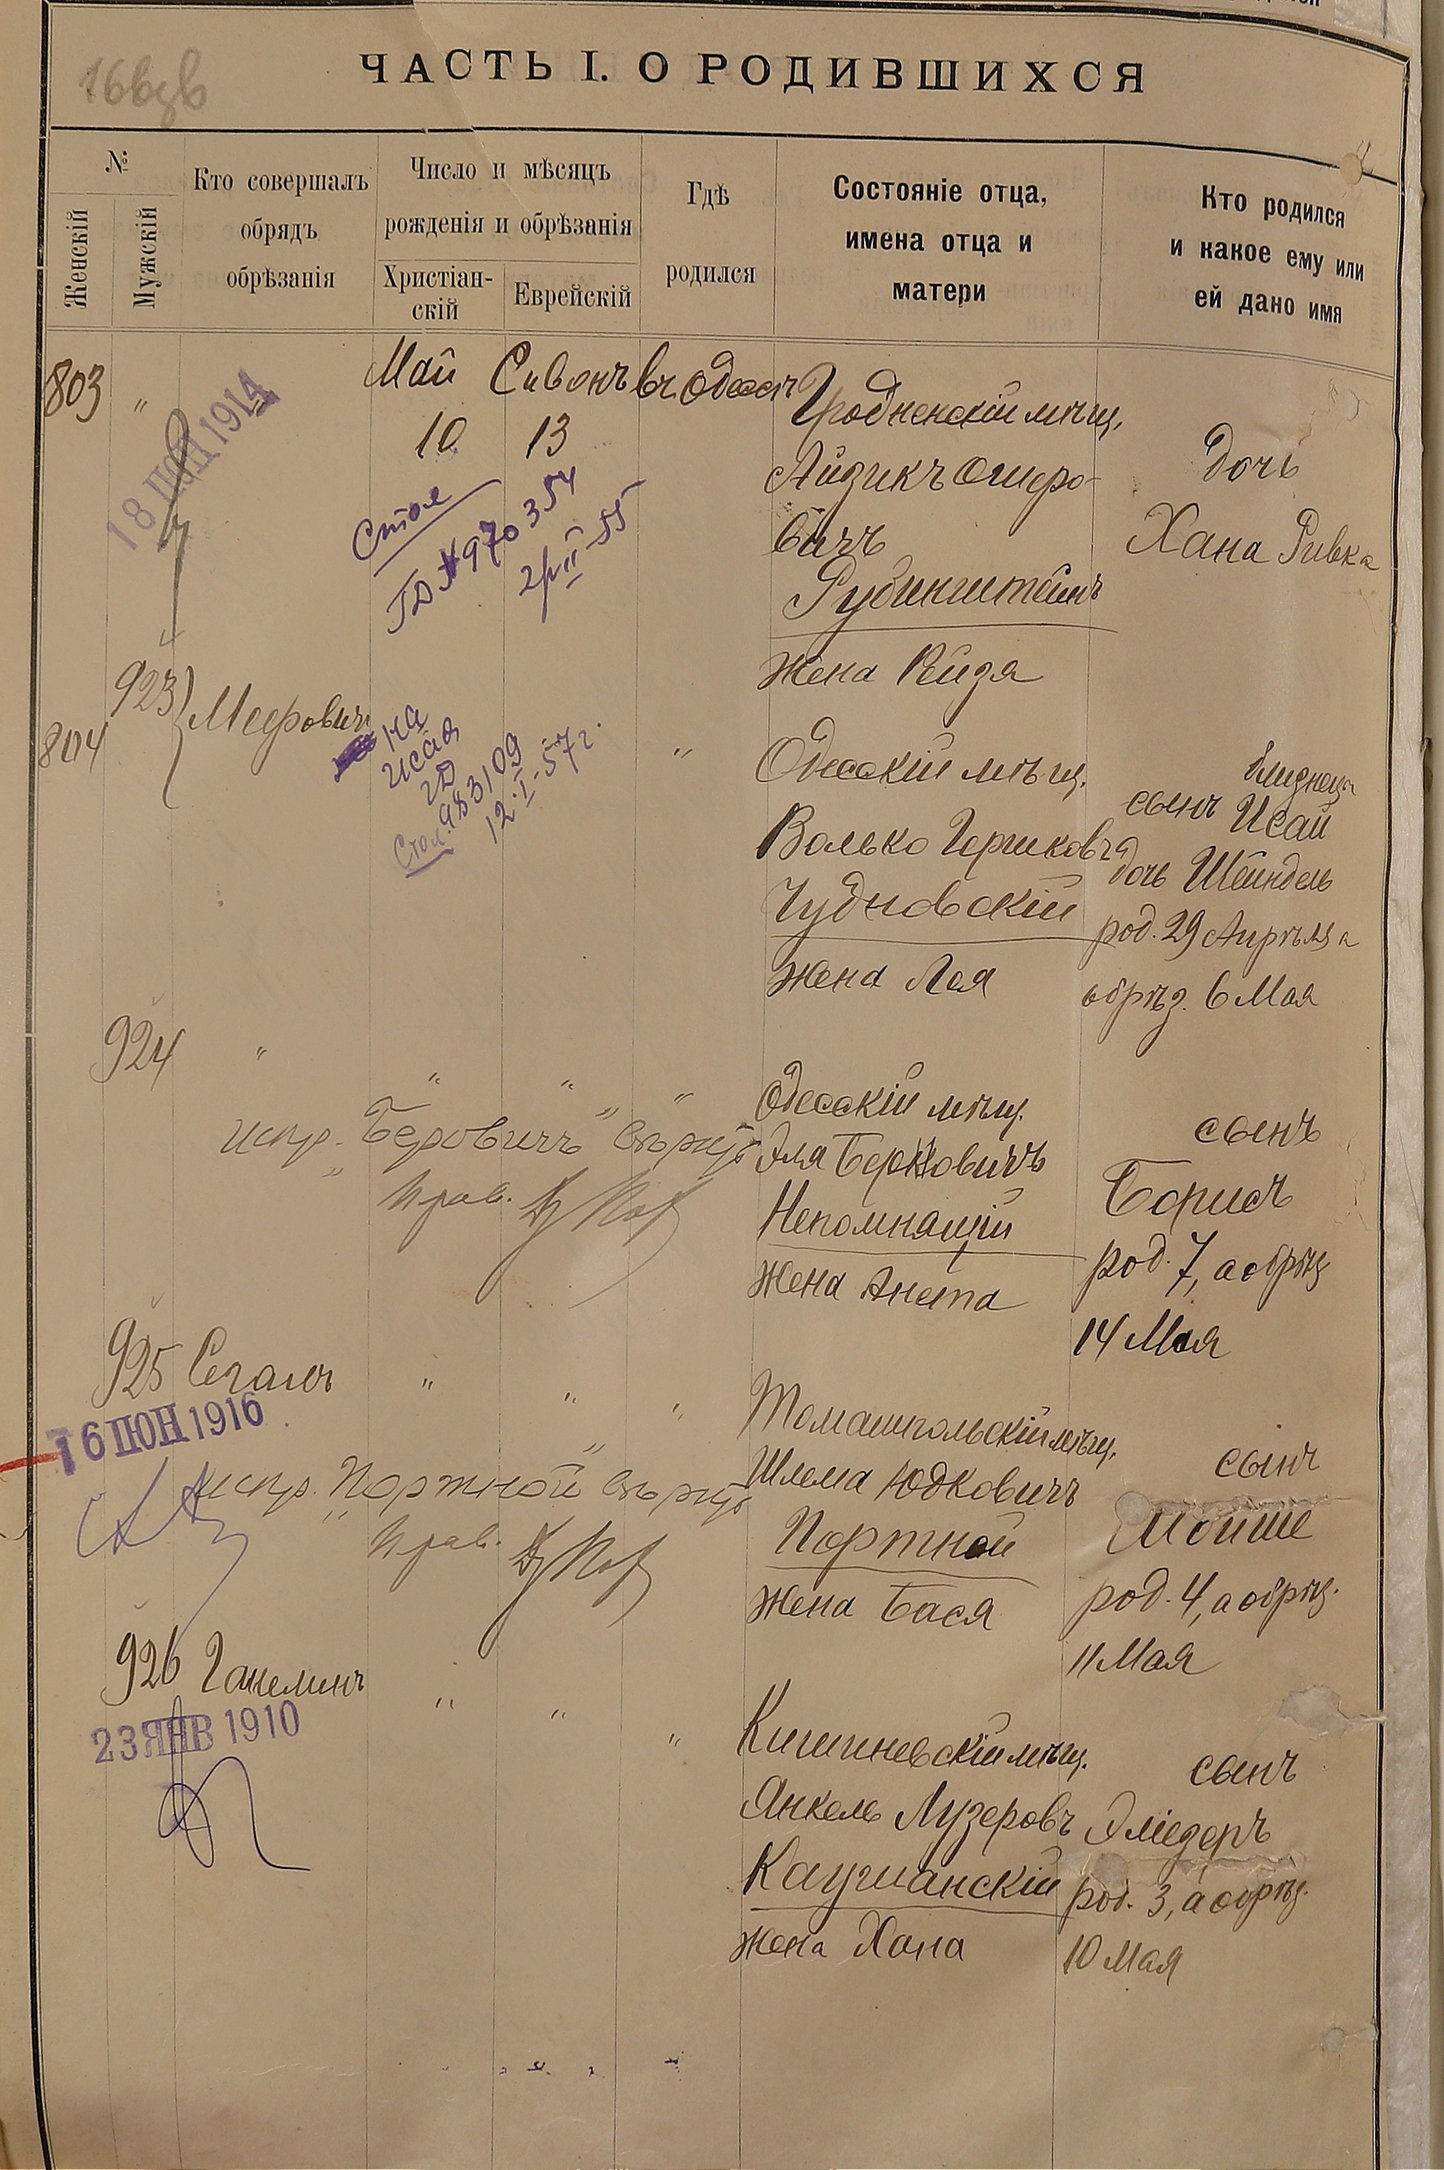 ЧАСТЬ I. О РОДИВШИХСЯ
№
Женскій
Мужскій
Кто совершалъ
обрядъ
обрѣзанія
Число и мѣсяцъ
рожденія и обрѣзанія
Христіан-
скій
Еврейскій
Гдѣ
родился
Состояніе отца,
имена отца и
матери
Кто родился
и какое ему или
ей дано имя
803 " " Май Сивонъ въ Одессѣ
10 13
18 1914
Стол
ГД № 970354
55
Гродненскій мѣщ.
Айзикъ Ошеро-
вичъ
Рубинштейнъ
жена Рейзя
дочь
Хана Ривка
923
804
Меерович
на
Исая
ГД
983109
Стол. 12-I-57 г.
" " "
Одесскій мѣщ.
Волько Гершковъ
Чудновскій
жена Лея
близнецы
сынъ Исай
дочь Шейндель
род. 29 Апрѣля
обрѣз. 6 Мая
924 " " " "
Одесскій мѣщ.
Эля Берковичъ
Непомнящій
жена Анета
испр. "Беровичъ" вѣрить
Прав.
сынъ
Борисъ
род. 7, а обрѣз
14 Мая
925 Сегалъ " " "
16 ІЮН 1916
Томашпольскій мѣщ.
Шлема Юдковичъ
Портной
жена Бася
испр. "Портной" вѣрить
Прав.
сынъ
Мойше
род. 4, а обрѣз.
11 Мая
926 Ганелинъ " " "
23 ЯНВ 1910
Кишиневскій мѣщ.
Янкель Лузеровъ
Каушанскій
жена Хана
сынъ
Эліезеръ
род. 3, а обрѣз.
10 Мая